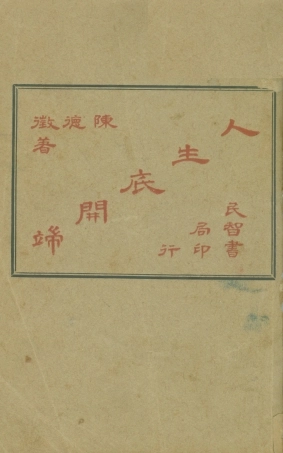 人生底開端
陳德徵著
民智書局印行